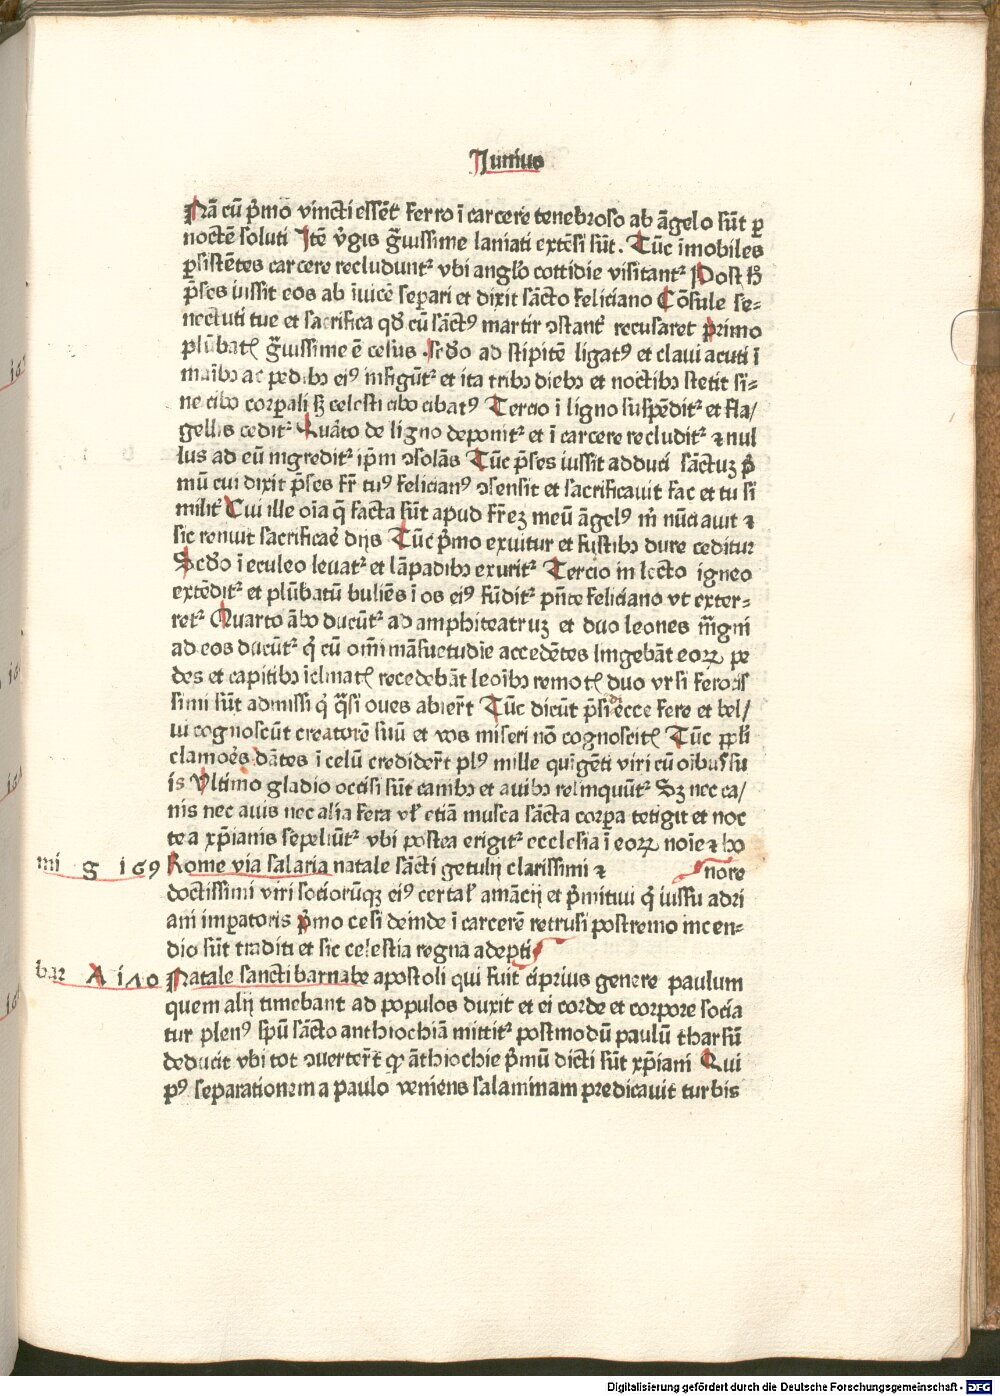 Junius
Nā cū p̄mo vincti essēt ferro ī carcere tenebroso ab āgelo sūt ꝑ
noctē soluti Itē v̓gis g̃uissime laniati extēsi sūt. Tūc īmobiles
ꝑsistētes carcere recluduntᷣ vbi angl̓o cottidie visitantᷣ Post h̄
p̄ses iussit eos ab īuicē separi et dixit sācto feliciano Cōsule se⸗
nectuti tue et sacrifica qd̓ cū sāctꝰ martir ↄstant̓ recusaret primo
plūbatꝭ g̃uissime ē cesus .scd̓o ad stipitē ligatꝰ et claui acuti ī
maībꝫ ac pedibꝫ eiꝰ infigūtᷣ et ita tribꝫ diebꝫ et noctibꝫ stetit si⸗
ne cibo corꝑali sꝫ celesti cibo cibatꝰ Tercio ī ligno suspēditᷣ et fla/
gellis ceditᷣ Quāto de ligno deponitᷣ et ī carcere recluditᷣ ⁊ nul
lus ad eū ingreditᷣ ip̄m ↄsolās Tūc p̄ses iussit adduci sāctuꝫ p̄
mū cui dixit p̄ses fr̄ tuꝰ felicianꝰ ↄsensit et sacrificauit fac et tu si
milit̓ Cui ille oīa q̄ facta sūt apud fr̄eꝫ meū āgelꝰ m̄ nūciauit ⁊
sic renuit sacrificae̓ dijs Tūc p̄mo exuitur et fustibꝫ dure ceditur
Scd̓o ī eculeo leuatᷣ et lāpadibꝫ exuritᷣ Tercio in lecto igneo
extēditᷣ et plūbatū buliēs ī os eiꝰ fūditᷣ pn̄te feliciano vt exter⸗
retᷣ Quarto ābo ducūtᷣ ad amphiteatruꝫ et duo leones m̄igni
ad eos ducūtᷣ q̓ cū om̄i māsuetudie accedētes lingebāt eoꝝ pe
des et capitibꝫ īclinatꝭ recedebāt leoībꝫ remotꝭ duo vrsi ferocis
simi sūt admissi q̓ q̃si oues abier̄t Tūc dicūt p̄si ecce fere et bel/
ui cognoscūt creatorē suū et vos miseri nō cognoscitꝭ Tūc ppl̓i
clamoe̓s dātes ī celū credider̄t plꝰ mille quīgēti viri cū oībus su
is Vltimo gladio occisi sūt canibꝫ et auibꝫ relinquūtᷣ Sꝫ nec ca/
nis nec auis nec alia fera vl̓ etiā musca sācta corꝑa tetigit et noc
te a xp̄ianis sepeliūtᷣ vbi postea erigitᷣ ecclesia ī eoꝝ noīe ⁊ ho
mi g 169 Rome via salaria natale sācti getulij clarissimi ⁊ nore
doctissimi viri sociorūqꝫ eiꝰ certal̓ amācij et p̄mitiui q̓ iussu adri
ani imꝑatoris p̄mo cesi deinde ī carcerē retrusi postremo incen⸗
dio sūt traditi et sic celestia regna adepti
bar A 170 Natale sancti barnabe apostoli qui fuit ciprius genere paulum
quem alij timebant ad populos duxit et ei corde et corpore socia
tur plenꝰ sp̄u sācto anthiochiā mittitᷣ postmodū paulū tharsū
deducit vbi tot ↄuerter̄t ꝙ āthiochie p̄mū dicti sūt xp̄iani Qui
pꝰ separationem a paulo veniens salaminam predicauit turbis
Digitalisierung gefördert durch die Deutsche Forschungsgemeinschaft - DFG